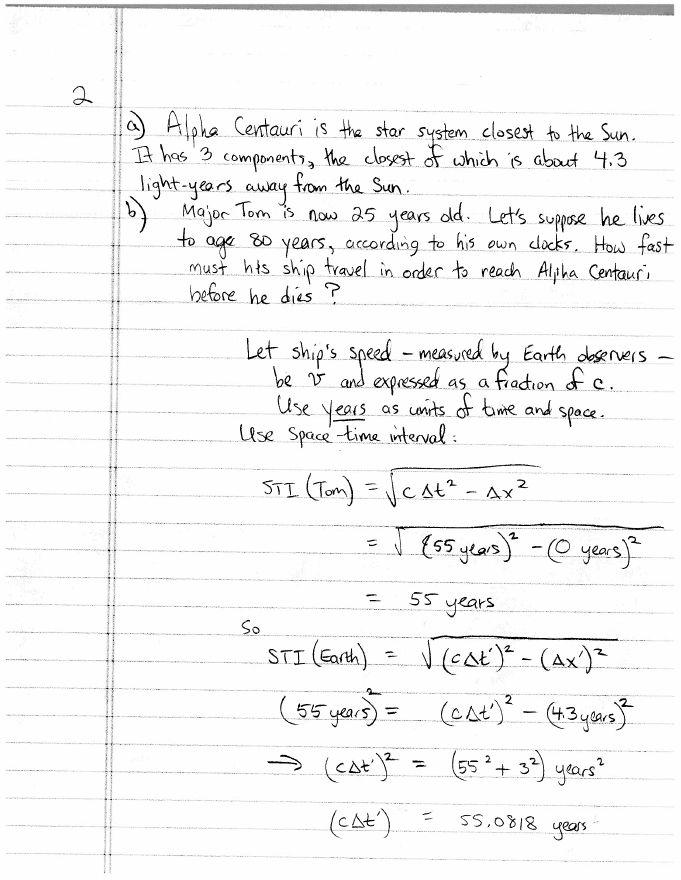 2
a) Alpha Centauri is the star system closest to the Sun.
It has 3 components, the closest of which is about 4.3
light-years away from the Sun.
b) Major Tom is now 25 years old. Let's suppose he lives
to age 80 years, according to his own clocks. How fast
must his ship travel in order to reach Alpha Centauri
before he dies?
Let ship's speed – measured by Earth observers –
be v and expressed as a fraction of c.
Use years as units of time and space.
Use Space-time interval:
STI (Tom) = √(c Δt² − Δx²)
= √((55 years)² − (0 years)²)
= 55 years
So
STI (Earth) = √((cΔt')² − (Δx')²)
(55 years)² = (cΔt')² − (4.3 years)²
→ (cΔt')² = (55² + 3²) years²
(cΔt') = 55.0818 years